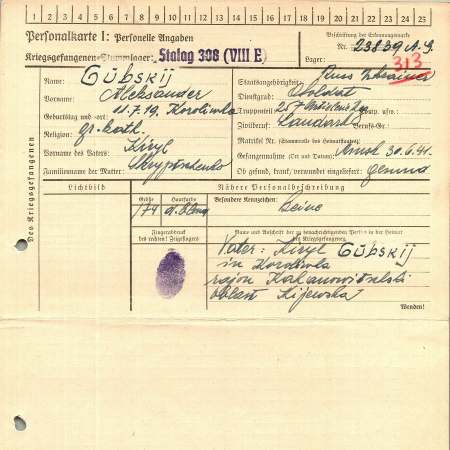 1 2 3 4 5 6 7 8 9 10 11 12 13 14 15 16 17 18 19 20 21 22 23 24 25
Personalkarte I: Personelle Angaben
Kriegsgefangenen-Stammlager: Stalag 308 (VIII E)
Beschriftung der Erkennungsmarke
Nr. 23839
Lager: 313
Des Kriegsgefangenen
Name: Gübskij
Vorname: Aleksander
Geburtstag und -ort: 11.7.19. Koroliwka
Religion: gr. kath.
Vorname des Vaters: Kiryl
Familienname der Mutter: Skryptschenko
Staatsangehörigkeit: Russ Ukrainer
Dienstgrad: Soldat
Truppenteil: 257 Komp. usw.:
Zivilberuf: Landarb. Berufs-Gr.:
Matrikel Nr. (Stammrolle des Heimatstaates):
Gefangennahme (Ort und Datum): 30.6.41.
Ob gesund, krank, verwundet eingeliefert: gesund
Lichtbild
Nähere Personalbeschreibung
Größe
Haarfarbe
Besondere Kennzeichen:
174 d. blond Keine
Fingerabdruck
des rechten! Zeigefingers
Name und Anschrift der zu benachrichtigenden Person in der Heimat
des Kriegsgefangenen
Vater: Kiryl Gübskij
in Koroliwka
rajon
oblast Kijewska
Wenden!